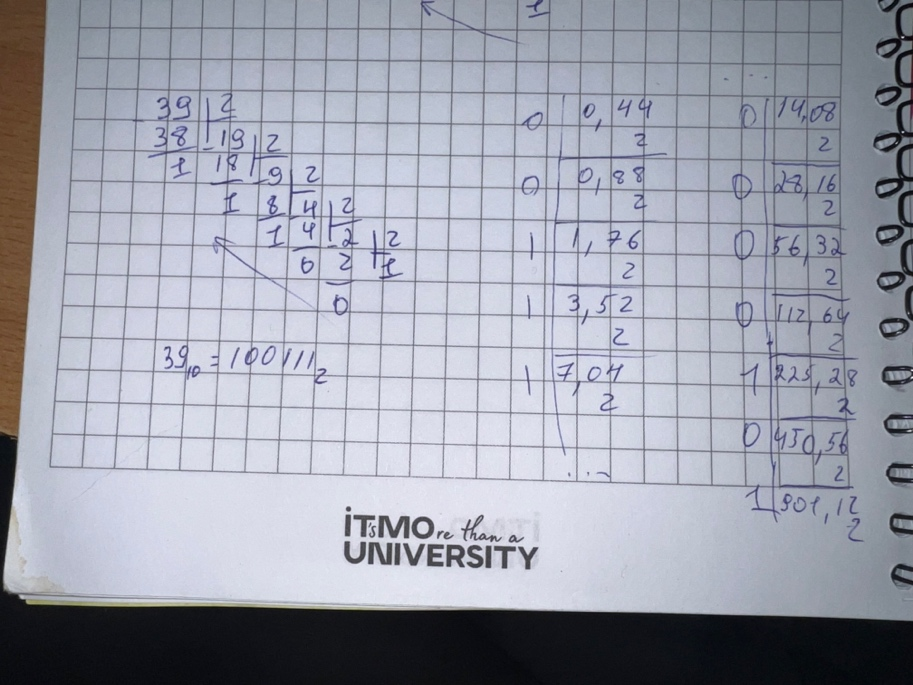 1
39 2
38 19 2
1 18 9 2
1 8 4 2
1 4 2 2
0 2 1
0
39₁₀ = 100111₂
0 0,44
2
0 0,88
2
1 1,76
2
1 3,52
2
1 7,04
2
...
0 14,08
2
0 28,16
2
0 56,32
2
0 112,64
2
1 225,28
2
0 450,56
2
1 901,12
2
iT'sMOre than a
UNIVERSITY